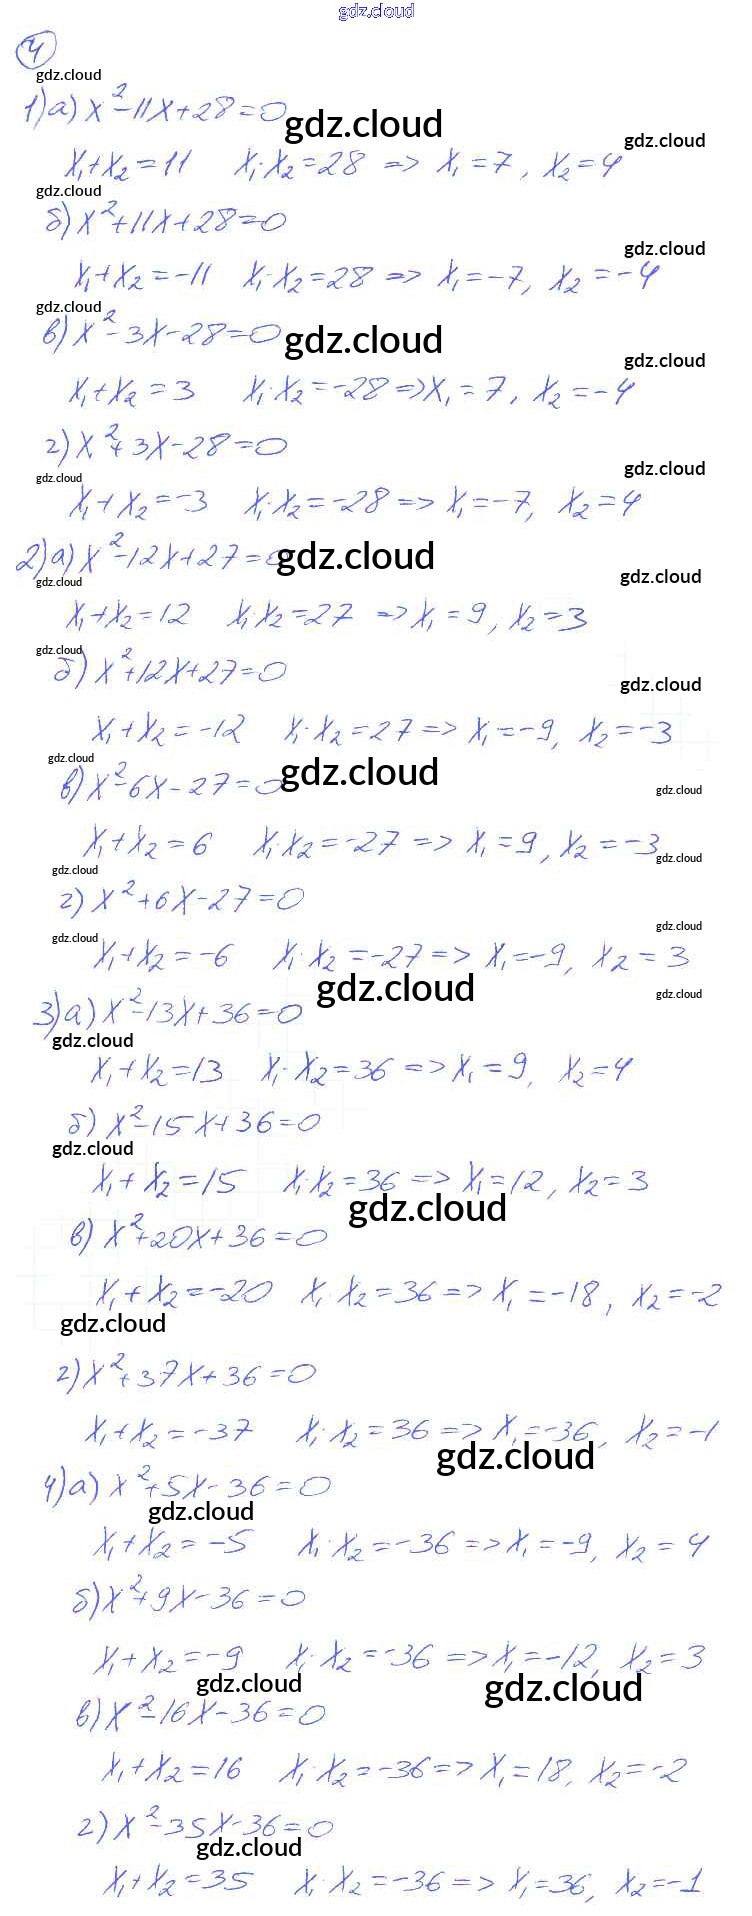 gdz.cloud
4
gdz.cloud
1) а) x²-11x+28=0
gdz.cloud
gdz.cloud
x₁+x₂=11 x₁·x₂=28 => x₁=7, x₂=4
gdz.cloud
б) x²+11x+28=0
gdz.cloud
x₁+x₂=-11 x₁·x₂=28 => x₁=-7, x₂=-4
gdz.cloud
в) x²-3x-28=0
gdz.cloud
gdz.cloud
x₁+x₂=3 x₁·x₂=-28 => x₁=7, x₂=-4
г) x²+3x-28=0
gdz.cloud
gdz.cloud
x₁+x₂=-3 x₁·x₂=-28 => x₁=-7, x₂=4
2) а) x²-12x+27=0
gdz.cloud
gdz.cloud
gdz.cloud
x₁+x₂=12 x₁·x₂=27 => x₁=9, x₂=3
gdz.cloud
б) x²+12x+27=0
gdz.cloud
x₁+x₂=-12 x₁·x₂=27 => x₁=-9, x₂=-3
gdz.cloud
в) x²-6x-27=0
gdz.cloud
gdz.cloud
x₁+x₂=6 x₁·x₂=-27 => x₁=9, x₂=-3
gdz.cloud
gdz.cloud
г) x²+6x-27=0
gdz.cloud
gdz.cloud
x₁+x₂=-6 x₁·x₂=-27 => x₁=-9, x₂=3
gdz.cloud
gdz.cloud
3) а) x²-13x+36=0
gdz.cloud
x₁+x₂=13 x₁·x₂=36 => x₁=9, x₂=4
б) x²-15x+36=0
gdz.cloud
x₁+x₂=15 x₁·x₂=36 => x₁=12, x₂=3
gdz.cloud
в) x²+20x+36=0
x₁+x₂=-20 x₁·x₂=36 => x₁=-18, x₂=-2
gdz.cloud
г) x²+37x+36=0
x₁+x₂=-37 x₁·x₂=36 => x₁=-36, x₂=-1
gdz.cloud
4) а) x²+5x-36=0
gdz.cloud
x₁+x₂=-5 x₁·x₂=-36 => x₁=-9, x₂=4
б) x²+9x-36=0
x₁+x₂=-9 x₁·x₂=-36 => x₁=-12, x₂=3
gdz.cloud
gdz.cloud
в) x²-16x-36=0
x₁+x₂=16 x₁·x₂=-36 => x₁=18, x₂=-2
г) x²-35x-36=0
gdz.cloud
x₁+x₂=35 x₁·x₂=-36 => x₁=36, x₂=-1